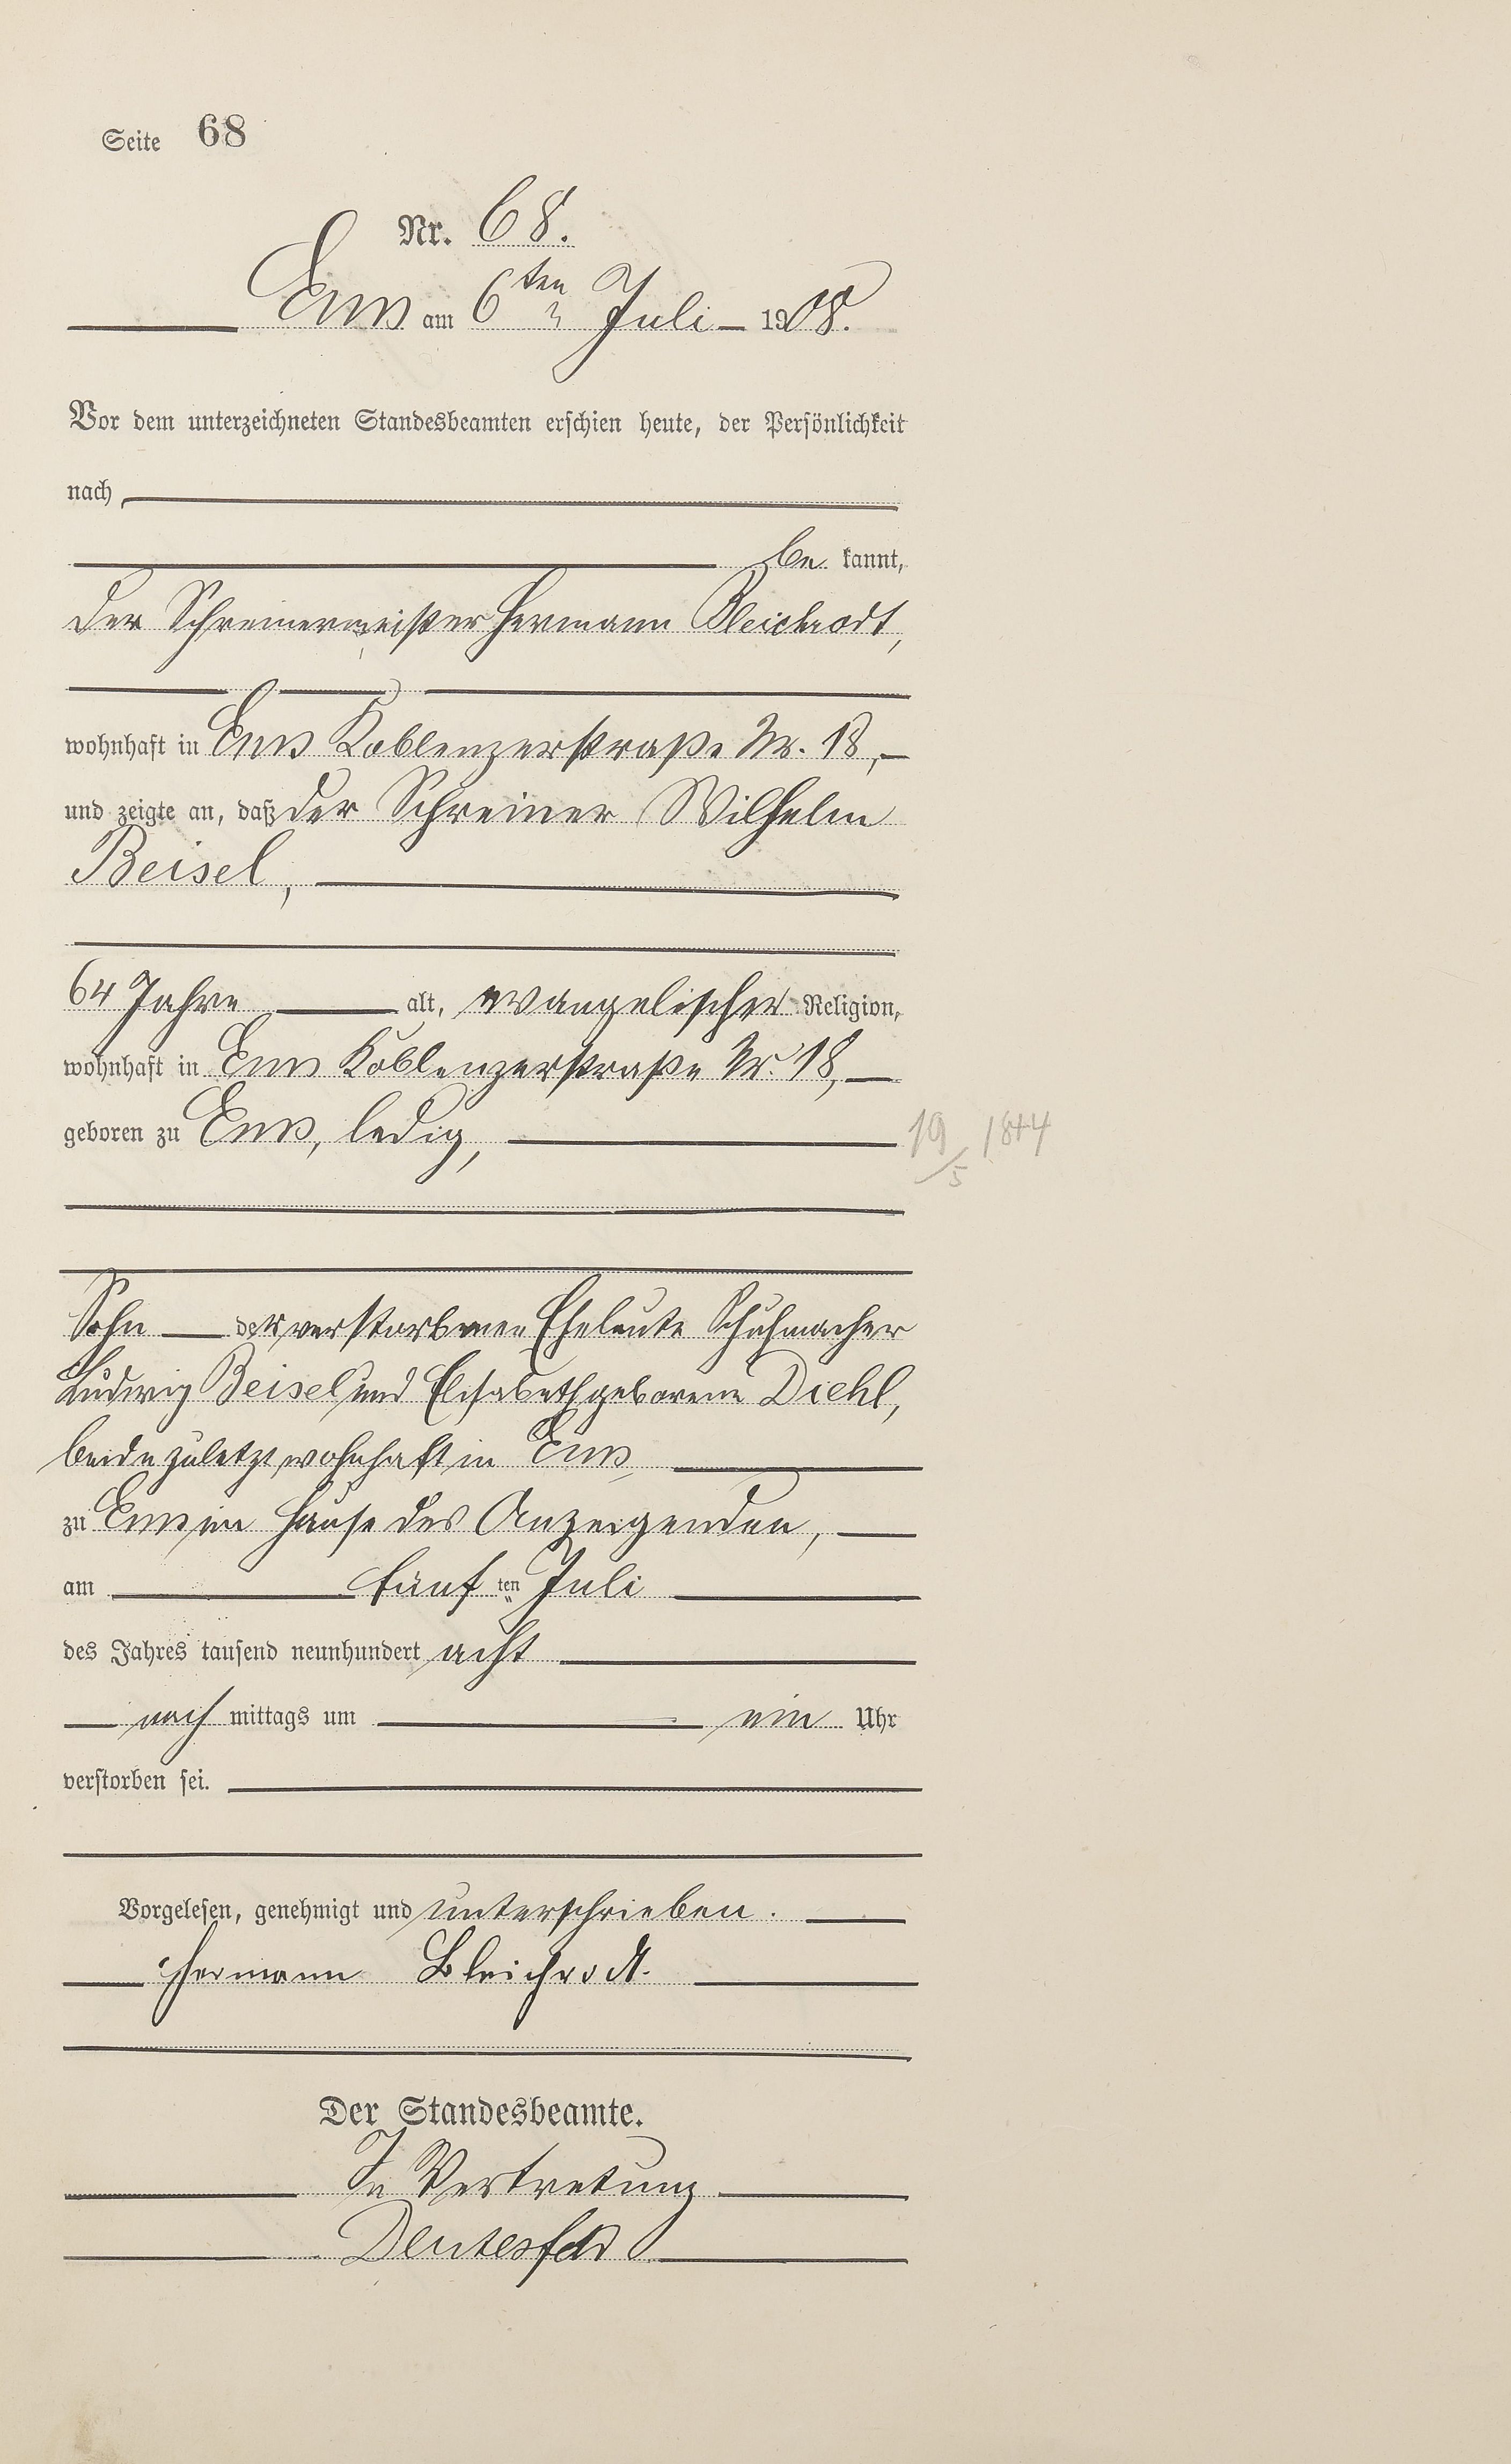 Seite 68
Nr. 68.
Ems am 6ten Juli 1908.
Vor dem unterzeichneten Standesbeamten erschien heute, der Persönlichkeit
nach
be kannt,
der Schreinermeister Hermann Bleichrodt,
wohnhaft in Ems Koblenzerstraße Nr. 18,
und zeigte an, daß der Schreiner Wilhelm
Beisel,
64 Jahre alt, evangelischer Religion,
wohnhaft in Ems Koblenzerstraße Nr. 18,
geboren zu Ems, ledig, 19/5 1844
Sohn der verstorbenen Eheleute Schuhmacher
Ludwig Beisel und Elisabeth geborene Diehl,
beide zuletzt wohnhaft in Ems
zu Ems im Hause des Anzeigenden,
am fünf ten Juli
des Jahres tausend neunhundert acht
nach mittags um ein Uhr
verstorben sei.
Vorgelesen, genehmigt und unterschrieben.
Hermann Bleichrodt.
Der Standesbeamte.
In Vertretung